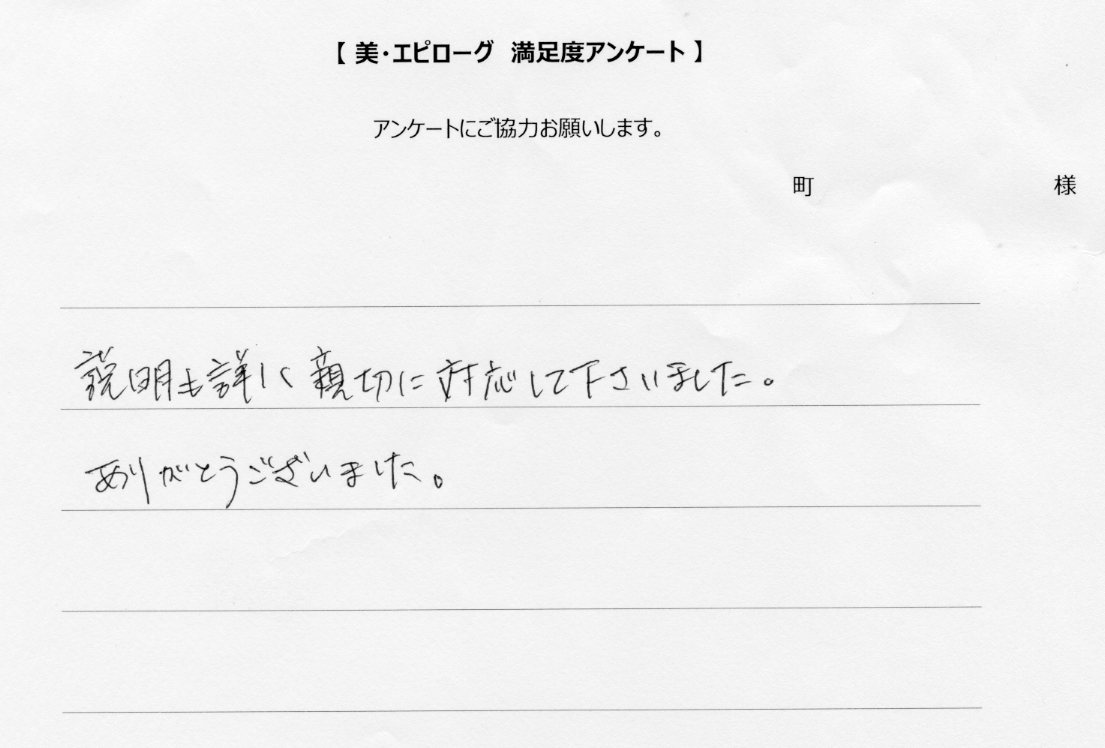 【 美・エピローグ 満足度アンケート 】
アンケートにご協力お願いします。
町 様
説明も詳しく親切に対応して下さいました。
ありがとうございました。